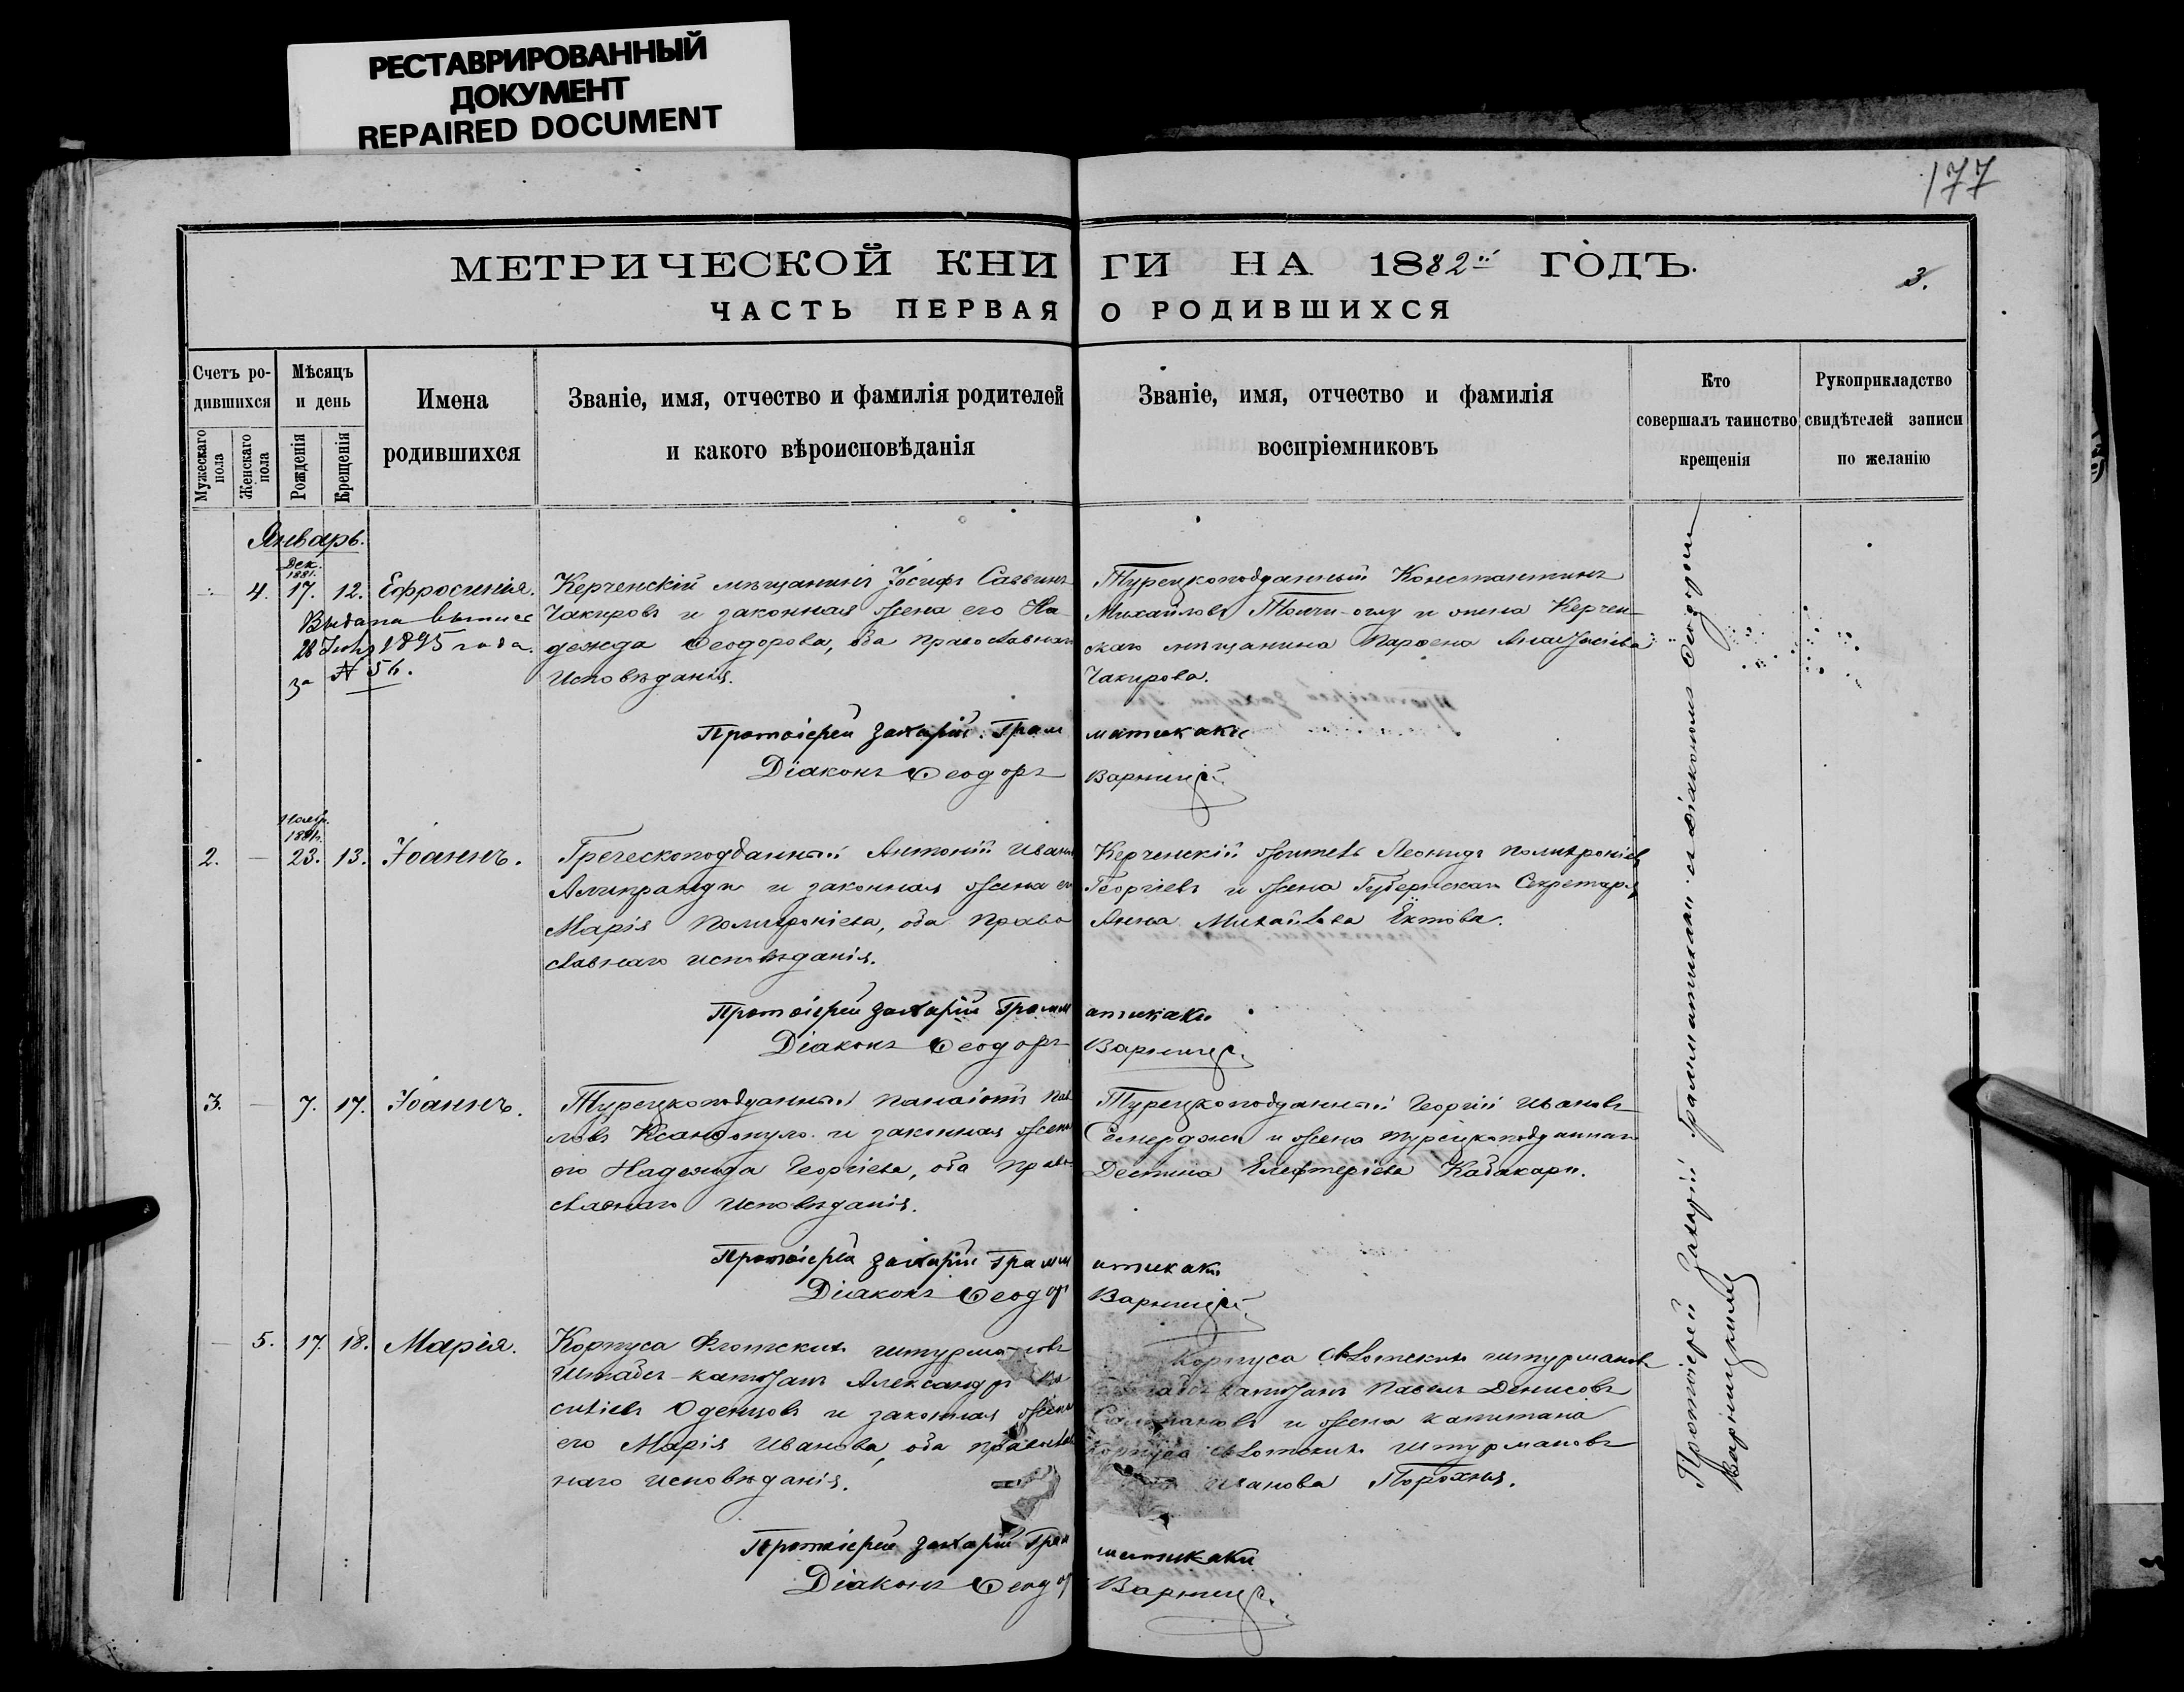 РЕСТАВРИРОВАННЫЙ
ДОКУМЕНТ
REPAIRED DOCUMENT
177
МЕТРИЧЕСКОЙ КНИГИ НА 1882й ГОДЪ.
3.
ЧАСТЬ ПЕРВАЯ О РОДИВШИХСЯ
Счетъ ро-
дившихся
Мужескаго пола
Женскаго пола
Мѣсяцъ
и день
Рожденія
Крещенія
Имена
родившихся
Званіе, имя, отчество и фамилія родителей
и какого вѣроисповѣданія
Званіе, имя, отчество и фамилія
воспріемниковъ
Кто
совершалъ таинство
крещенія
Рукоприкладство
свидѣтелей записи
по желанію
Январь.
Дек.
1881.
4. 17. 12. Ефросинія.
Выдана выпис
28 1895 года.
за № 56.
Керченскій мѣщанинъ Іосифъ Саввинъ
Чакировъ и законная жена его На-
дежда Ѳеодорова, оба православнаго
исповѣданія.
Турецкоподданный Константинъ
Михайловъ Топчи-оглу и жена Керчен-
скаго мѣщанина
Чакирова.
Протоіерей Захарій Грамматикаки
Діаконъ Ѳеодоръ Варницкій
Ноябр.
1881.
2. — 23. 13. Іоаннъ.
Греческоподданный Антоній Иванъ
Алипранди и законная жена его
Марія Полихроніева, оба право
славнаго исповѣданія.
Керченскій житель Леонидъ Полихроніевъ
Георгіевъ и жена Губернскаго Секретаря
Анна Михайлова Ектова.
Протоіерей Захарій Грамматикаки
Діаконъ Ѳеодоръ Варницкій
3. — 7. 17. Іоаннъ.
Турецкоподданный Панаіотъ Пав
ловъ Ксандопуло и законная жена
его Надежда Георгіева, оба право-
славнаго исповѣданія.
Турецкоподданный Георгій Ивановъ
Семерджи и жена турецкоподданнаго
Деспина Елефтеріева Кабакари.
Протоіерей Захарій Грамматикаки
Діаконъ Ѳеодоръ Варницкій
— 5. 17. 18. Марія.
Корпуса Флотскихъ штурмановъ
Штабсъ-капитанъ Александръ Ва
силіевъ Оденцовъ и законная жена
его Марія Иванова, оба православ
наго исповѣданія.
Корпуса Флотскихъ штурмановъ
капитанъ Павелъ Денисовъ
и жена капитана
корпуса Флотскихъ штурмановъ
Иванова Порохня.
Протоіерей Захарій Грамматикаки
Діаконъ Ѳеодоръ Варницкій
Протоіерей Захарій Грамматикаки съ Діакономъ Ѳеодоромъ
Варницкимъ